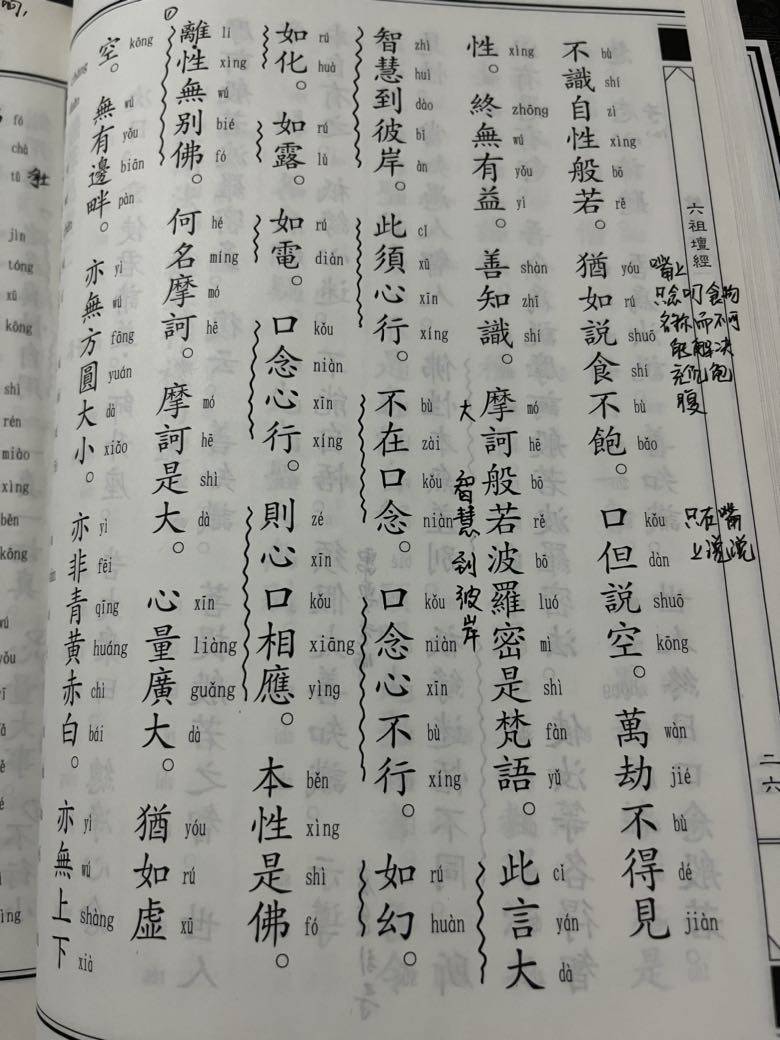 六祖壇經
二六
嘴上
只念叨食物
名称而不可
能解决
充饥饱
腹
只在嘴
上说说
不識自性般若。猶如說食不飽。口但說空。萬劫不得見
bù shí zì xìng bō rě yóu rú shuō shí bù bǎo kǒu dàn shuō kōng wàn jié bù dé jiàn
性。終無有益。善知識。摩訶般若波羅密是梵語。此言大
xìng zhōng wú yǒu yì shàn zhī shí mó hē bō rě bō luó mì shì fàn yǔ cǐ yán dà
大 智慧到彼岸
智慧到彼岸。此須心行。不在口念。口念心不行。如幻。
zhì huì dào bǐ àn cǐ xū xīn xíng bù zài kǒu niàn kǒu niàn xīn bù xíng rú huàn
如化。如露。如電。口念心行。則心口相應。本性是佛。
rú huà rú lù rú diàn kǒu niàn xīn xíng zé xīn kǒu xiāng yìng běn xìng shì fó
離性無別佛。何名摩訶。摩訶是大。心量廣大。猶如虛
lí xìng wú bié fó hé míng mó hē mó hē shì dà xīn liàng guǎng dà yóu rú xū
空。無有邊畔。亦無方圓大小。亦非青黃赤白。亦無上下
kōng wú yǒu biān pàn yì wú fāng yuán dà xiǎo yì fēi qīng huáng chì bái yì wú shàng xià
fó chà tǔ jìn tóng xū kōng shì rén miào xìng běn kōng